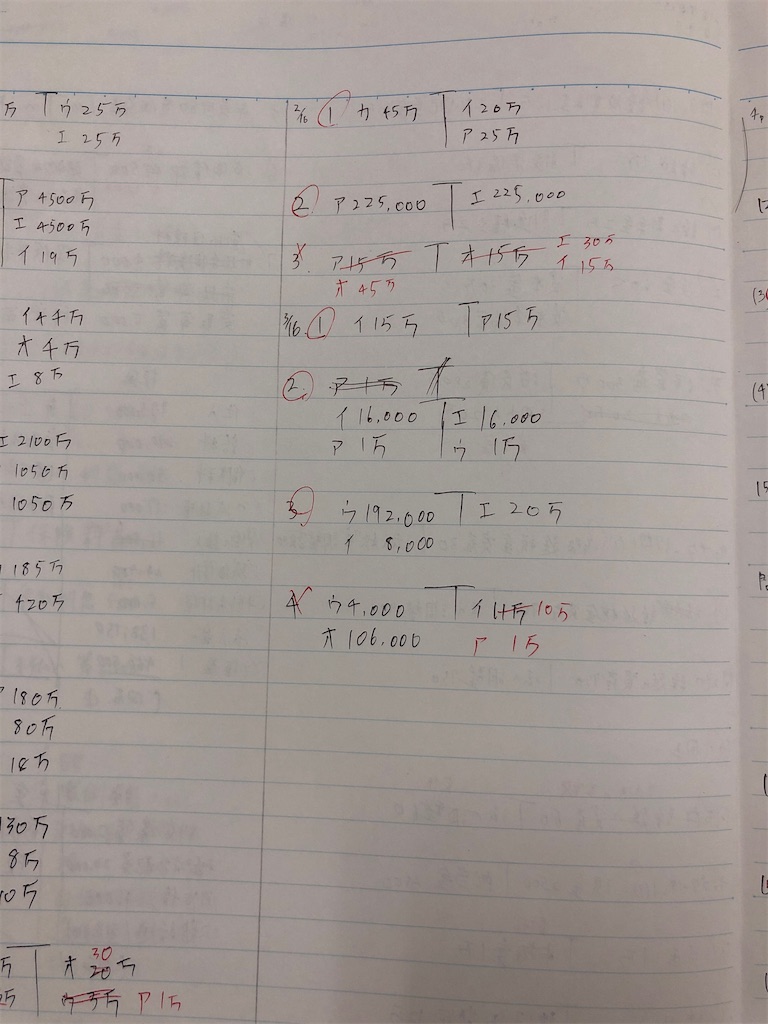 万 ウ 25万
エ 25万
ア 4500万
エ 4500万
イ 19万
イ 44万
オ 4万
エ 8万
エ 2100万
1050万
1050万
185万
420万
180万
80万
18万
130万
8万
万 オ 20万 30
ウ 5万 ア 1万
2/16 1 カ 45万 イ 20万
ア 25万
2. ア 225,000 エ 225,000
3. ア 15万 オ 15万 エ 30万
オ 45万 イ 15万
3/16 1 イ 15万 ア 15万
2. ア 1万
イ 16,000 エ 16,000
ア 1万 ウ 1万
3. ウ 192,000 エ 20万
イ 8,000
4. ウ 4,000 イ 11万 10万
オ 106,000 ア 1万